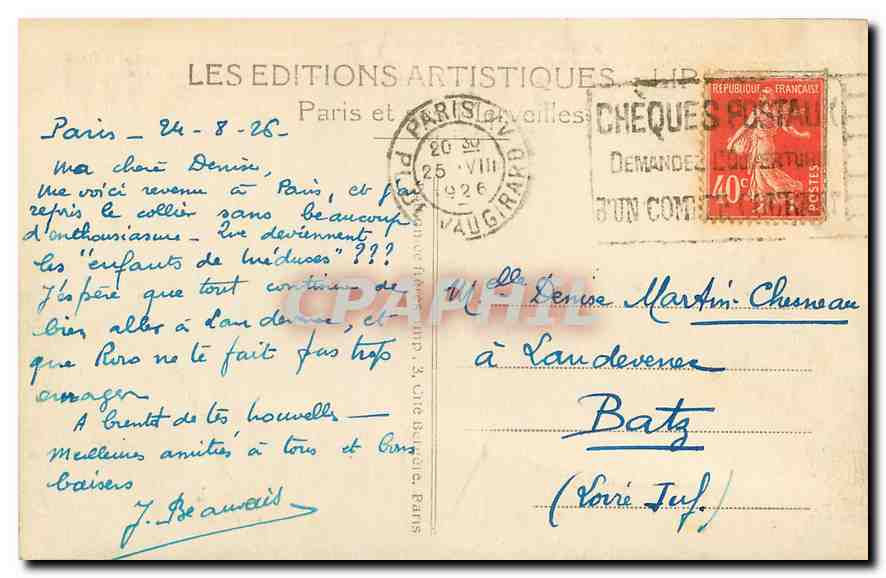 LES EDITIONS ARTISTIQUES LIP
Paris et ses Merveilles
PARIS XV
20 30
25 VIII
1926
R. DE VAUGIRARD
CHÈQUES POSTAUX
DEMANDEZ L'OUVERTURE
D'UN COMPTE COURANT
REPUBLIQUE FRANÇAISE
40c
POSTES
Paris - 24-8-26-
Ma chère Denise,
Me voici revenu à Paris, et j'ai
repris le collier sans beaucoup
d'enthousiasme - Que deviennent
les "enfants de Méduses" ???
J'espère que tout continue de
bien aller à Landevenec, et
que Roro ne te fait pas trop
enrager
A bientôt de tes nouvelles -
Meilleures amitiés à tous et bons
baisers
J. Beauvais
Imp., 3, Cité Bergère, Paris
Melle Denise Martin-Chesneau
à Landevenec
Batz
(Loire Inf.)
CPAPHIL